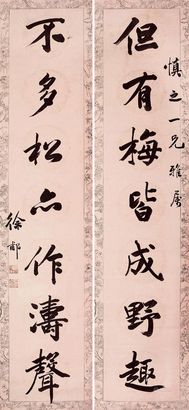 慎之一兄雅屬
但有梅皆成野趣
不多松亦作濤聲
徐郙